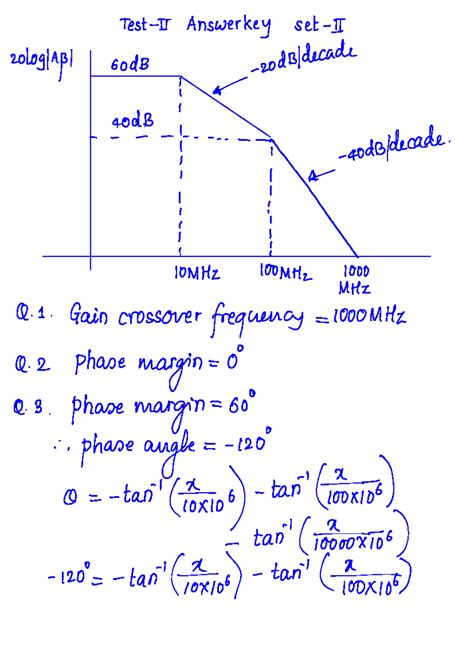 Test-II Answerkey set-II
20log|Aβ|
60dB
-20dB/decade
40dB
-40dB/decade.
10MHz 100MHz 1000 MHz
Q.1. Gain crossover frequency = 1000MHz
Q.2 phase margin = 0°
Q.3. phase margin = 60°
∴ phase angle = -120°
θ = -tan⁻¹(x/10×10⁶) - tan⁻¹(x/100×10⁶)
- tan⁻¹(x/10000×10⁶)
-120° = -tan⁻¹(x/10×10⁶) - tan⁻¹(x/100×10⁶)